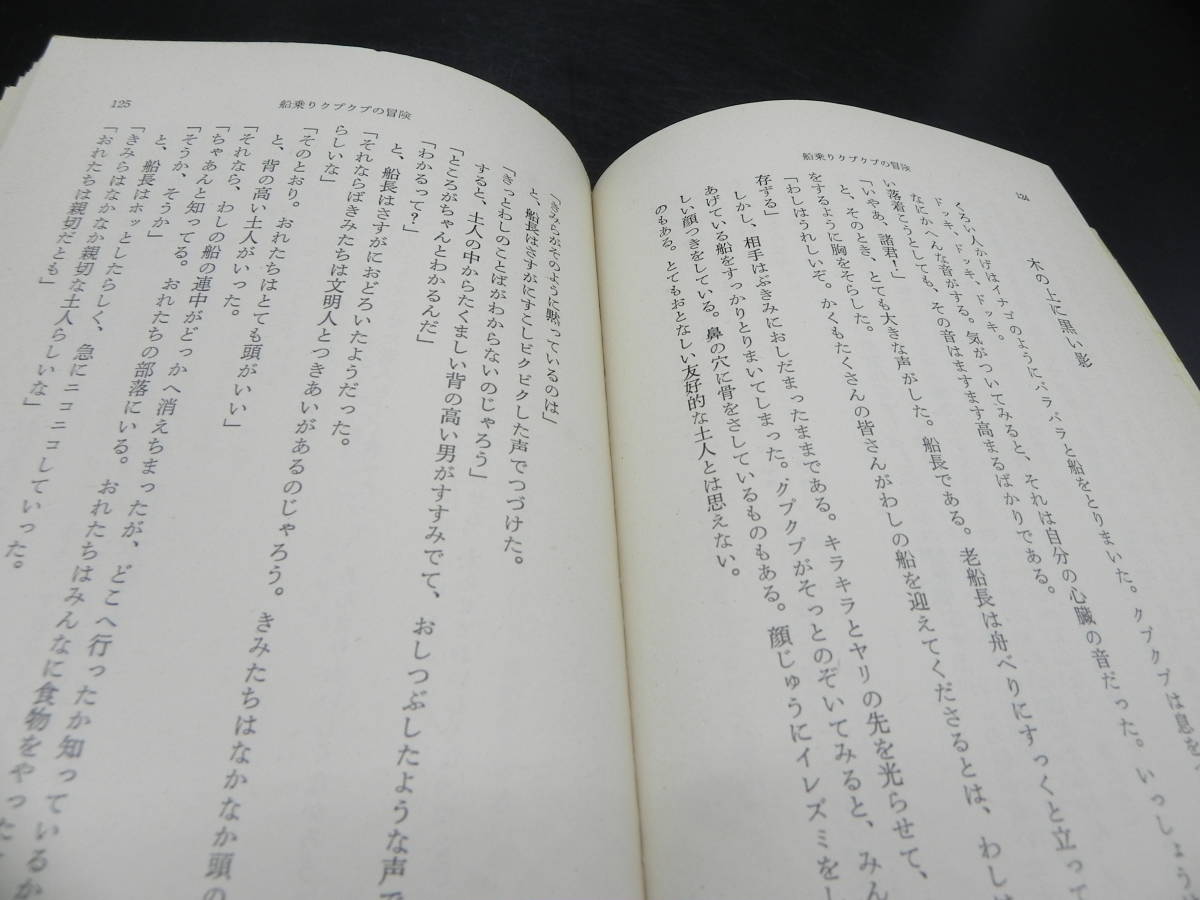 124
船乗りクプクプの冒険
木の上に黒い影
くろい人かげはイナゴのようにバラバラと船をとりまいた。クプクプは息を
ドッキ、ドッキ、ドッキ。
なにかへんな音がする。気がついてみると、それは自分の心臓の音だった。いっしょう
い落着こうとしても、その音はますます高まるばかりである。
「いやあ、諸君！」
と、そのとき、とても大きな声がした。船長である。老船長は舟べりにすっくと立って
をするように胸をそらした。
「わしはうれしいぞ。かくもたくさんの皆さんがわしの船を迎えてくださるとは、わしは
存ずる」
しかし、相手はぶきみにおしだまったままである。キラキラとヤリの先を光らせて、
あげている船をすっかりとりまいてしまった。クプクプがそっとのぞいてみると、みん
しい顔つきをしている。鼻の穴に骨をさしているものもある。顔じゅうにイレズミをし
のもある。とてもおとなしい友好的な土人とは思えない。
125
船乗りクプクプの冒険
「きみらがそのように黙っているのは」
と、船長はさすがにすこしビクビクした声でつづけた。
「きっとわしのことばがわからないのじゃろう」
すると、土人の中からたくましい背の高い男がすすみでて、おしつぶしたような声で
「ところがちゃんとわかるんだ」
「わかるって？」
と、船長はさすがにおどろいたようだった。
「それならばきみたちは文明人とつきあいがあるのじゃろう。きみたちはなかなか頭の
らしいな」
「そのとおり。おれたちはとても頭がいい」
と、背の高い土人がいった。
「それなら、わしの船の連中がどっかへ消えちまったが、どこへ行ったか知っているか
「ちゃあんと知ってる。おれたちの部落にいる。おれたちはみんなに食物をやった
「そうか、そうか」
と、船長はホッとしたらしく、急にニコニコしていった。
「きみらはなかなか親切な土人らしいな」
「おれたちは親切だとも」